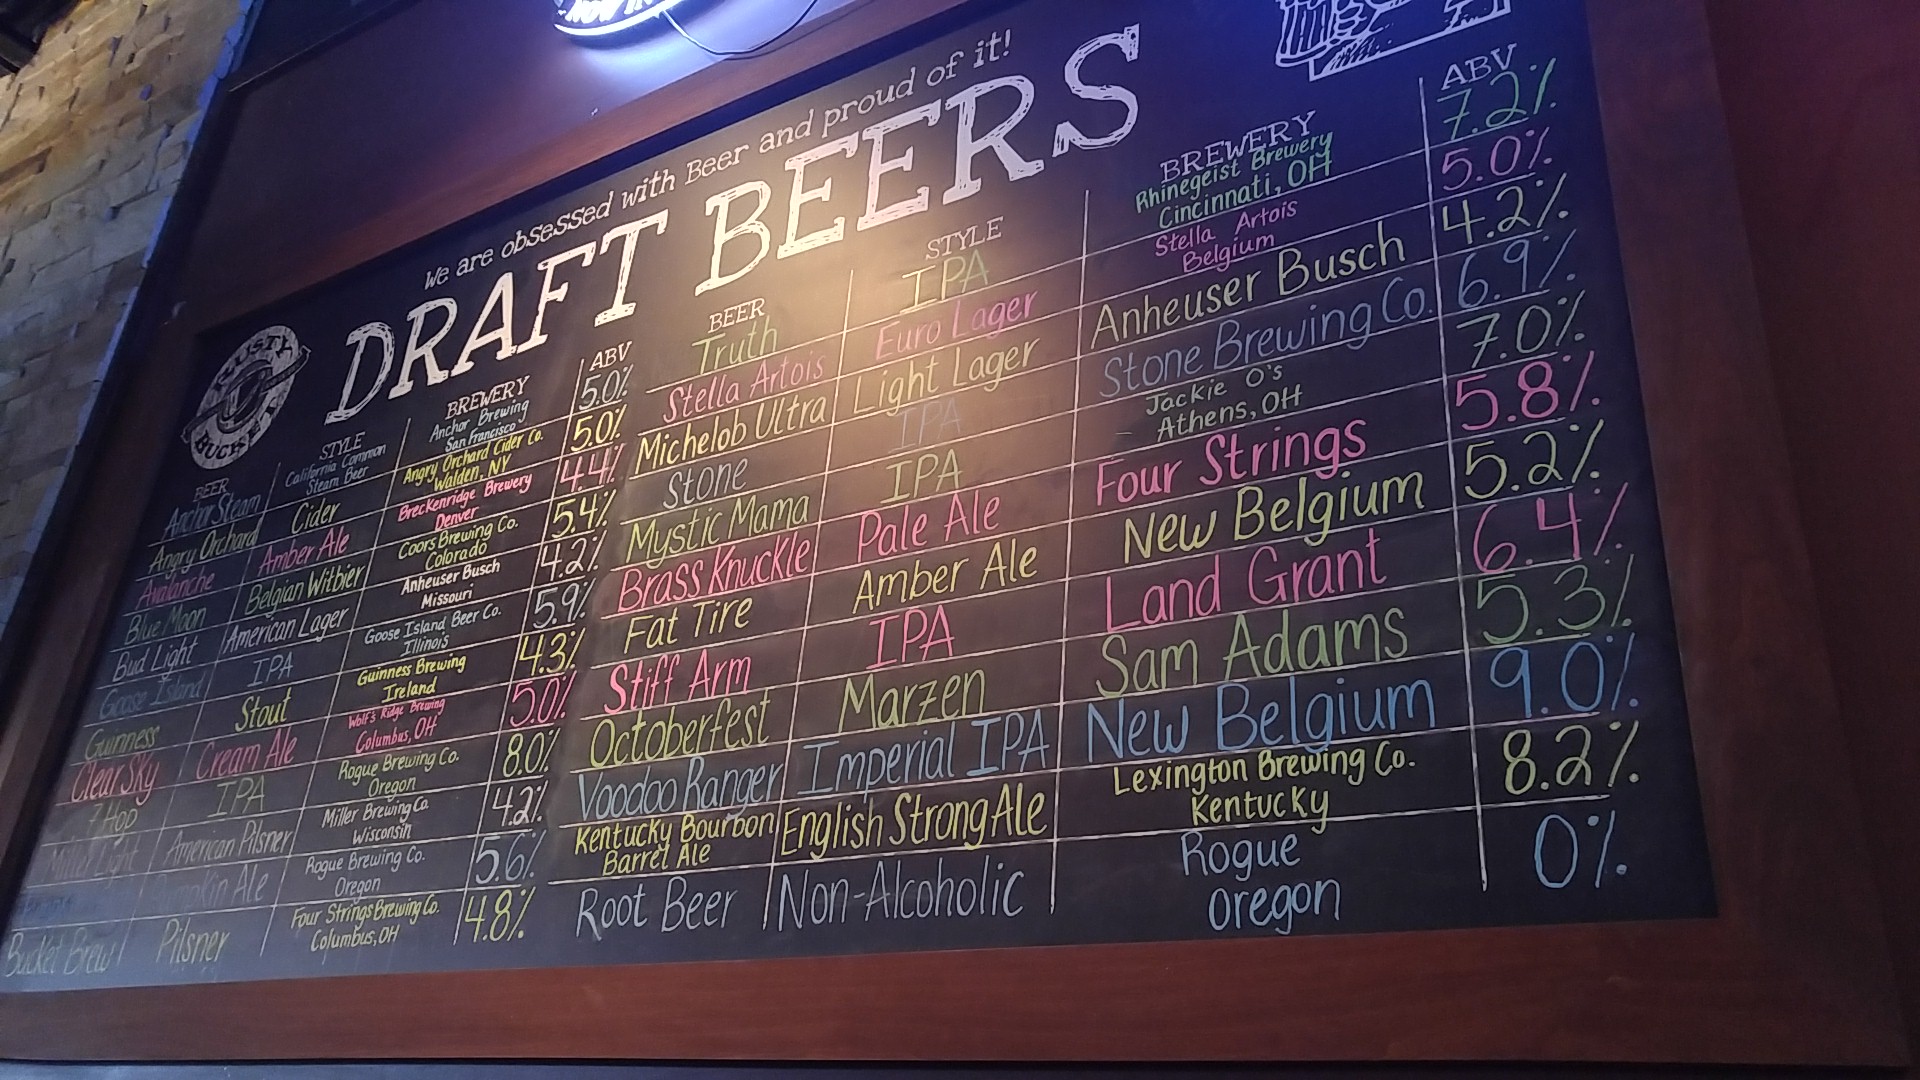 NOW IN
We are obsessed with Beer and proud of it!
DRAFT BEERS
RUSTY BUCKET
BEER STYLE BREWERY ABV
Anchor Steam California Common Steam Beer Anchor Brewing San Francisco 5.0%
Angry Orchard Cider Angry Orchard Cider Co. Walden, NY 5.0%
Avalanche Amber Ale Breckenridge Brewery Denver 4.4%
Blue Moon Belgian Witbier Coors Brewing Co. Colorado 5.4%
Bud Light American Lager Anheuser Busch Missouri 4.2%
Goose Island IPA Goose Island Beer Co. Illinois 5.9%
Guinness Stout Guinness Brewing Ireland 4.3%
Clear Sky Cream Ale Wolf's Ridge Brewing Columbus, OH 5.0%
7 Hop IPA Rogue Brewing Co. Oregon 8.0%
Miller Light American Pilsner Miller Brewing Co. Wisconsin 4.2%
Pumpkin Ale Rogue Brewing Co. Oregon 5.6%
Bucket Brew Pilsner Four Strings Brewing Co. Columbus, OH 4.8%
BEER STYLE BREWERY ABV
Truth IPA Rhinegeist Brewery Cincinnati, OH 7.2%
Stella Artois Euro Lager Stella Artois Belgium 5.0%
Michelob Ultra Light Lager Anheuser Busch 4.2%
Stone IPA Stone Brewing Co. 6.9%
Mystic Mama IPA Jackie O's Athens, OH 7.0%
Brass Knuckle Pale Ale Four Strings 5.8%
Fat Tire Amber Ale New Belgium 5.2%
Stiff Arm IPA Land Grant 6.4%
Octoberfest Marzen Sam Adams 5.3%
Voodoo Ranger Imperial IPA New Belgium 9.0%
Kentucky Bourbon Barrel Ale English Strong Ale Lexington Brewing Co. Kentucky 8.2%
Root Beer Non-Alcoholic Rogue Oregon 0%